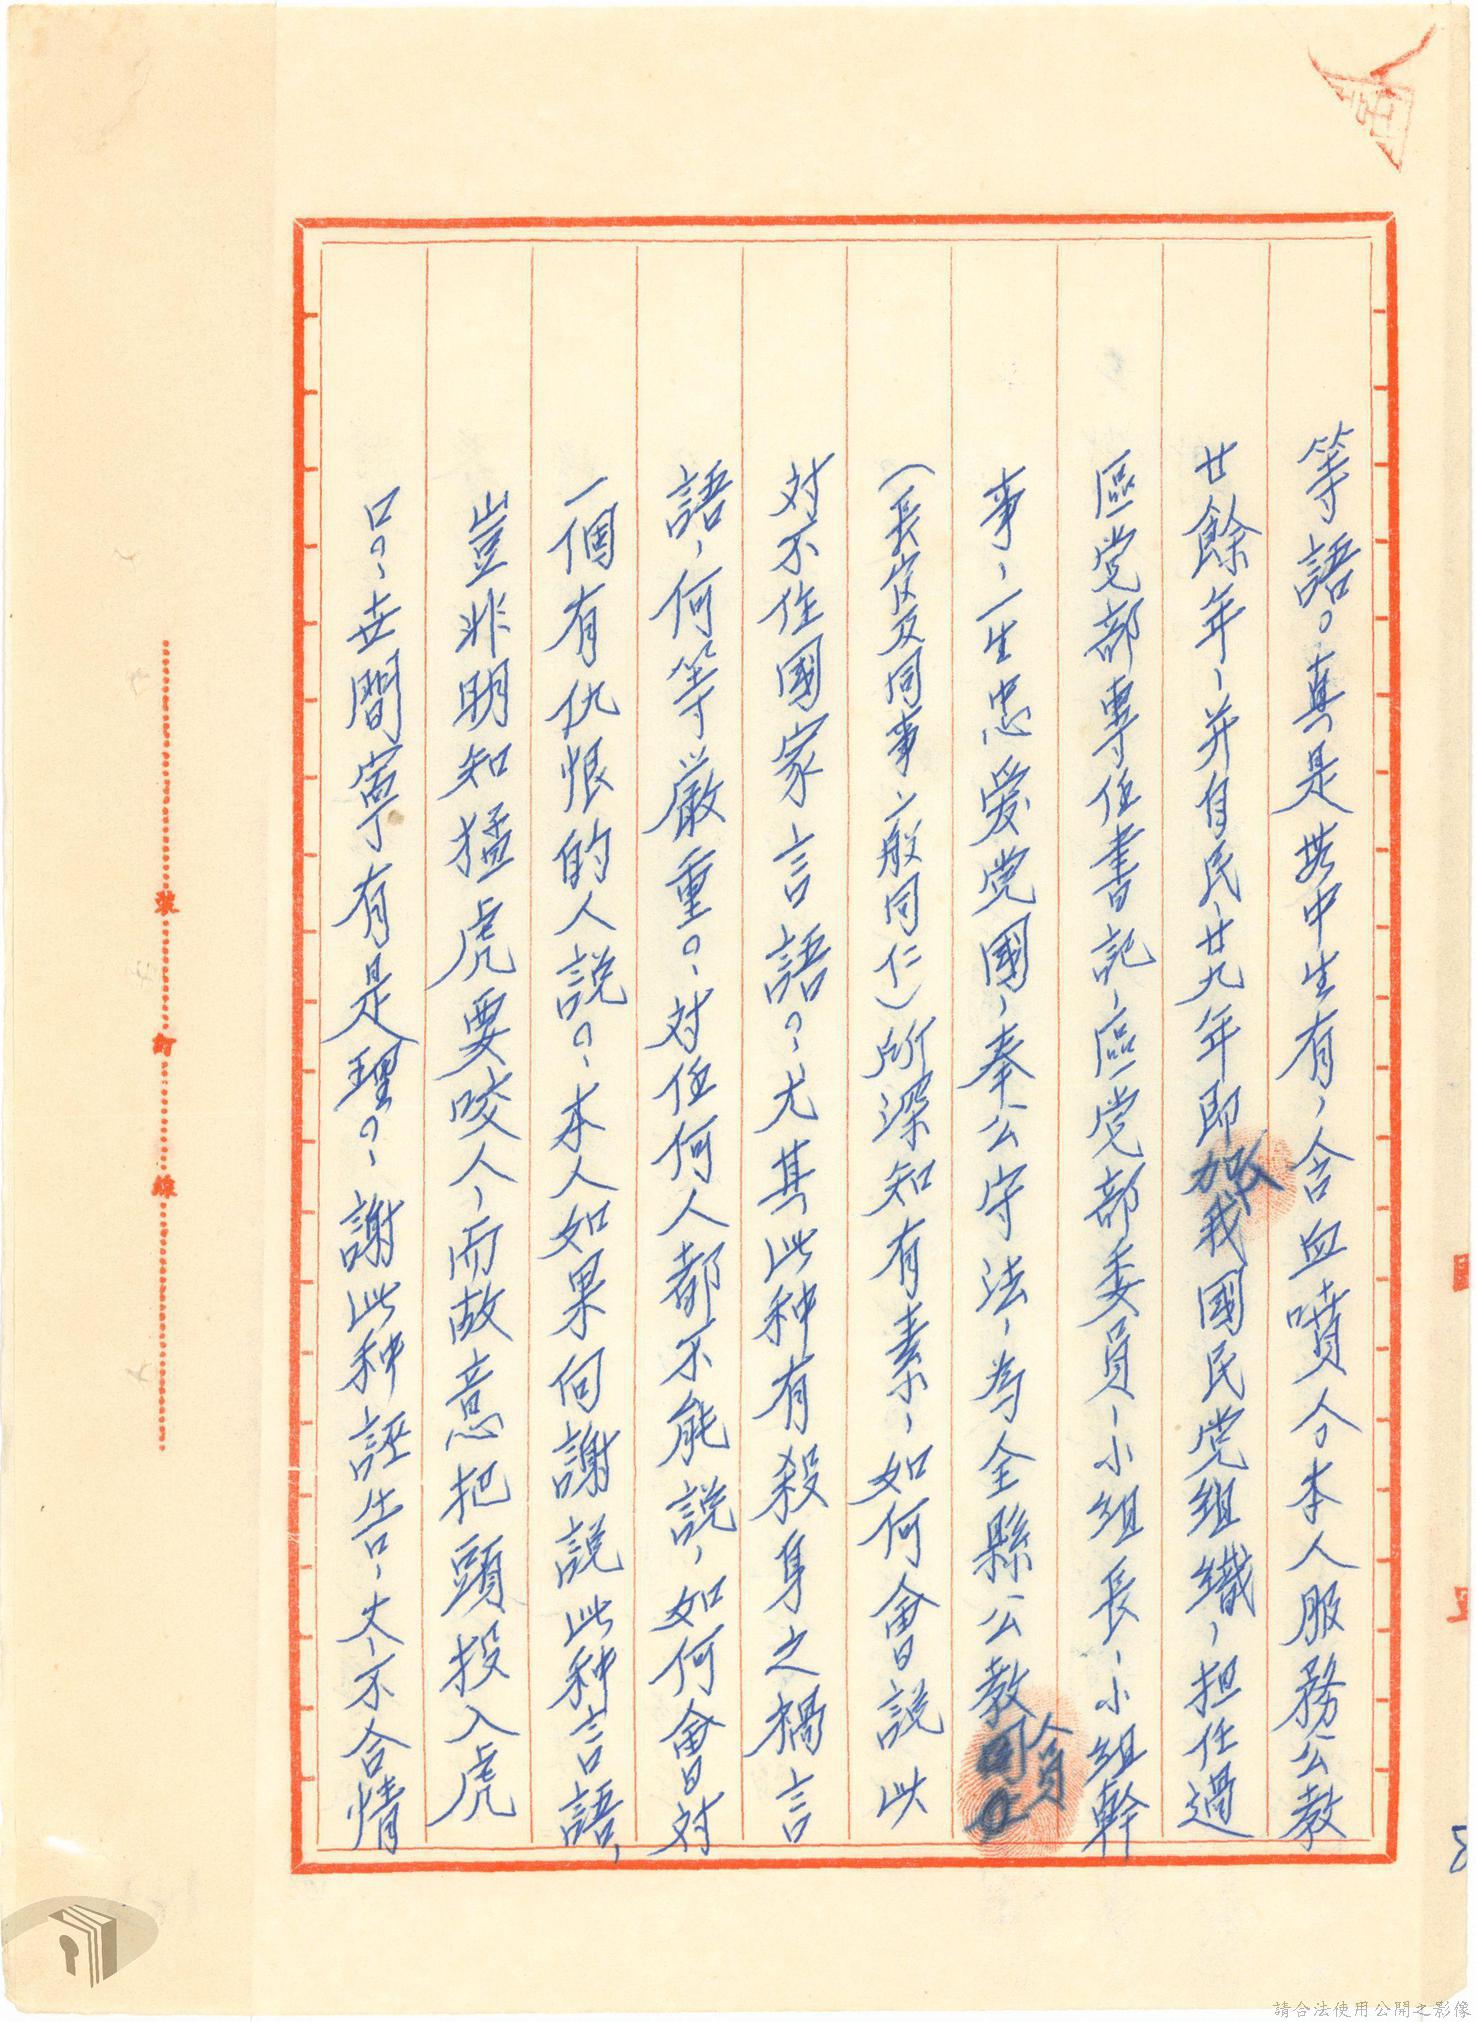 等語。真是無中生有，含血噴人，本人服務公教
廿餘年，并自民廿九年即加入我國民党組織，担任過
區党部專任書記，區党部委員，小組長，小組幹
事，一生忠爱党國，奉公守法，為全縣公教人員
（長官及同事，一般同仁）所深知有素，如何會説此
対不住國家言語？，尤其此种有殺身之禍言
語，何等嚴重？，対任何人都不能説，如何會对
一個有仇恨的人說？，本人如果向謝説此种言語，
豈非明知猛虎要咬人，而故意把頭投入虎
口？，世間寧有是理？，謝此种誣告，太不合情
裝
訂
線
請合法使用公開之影像